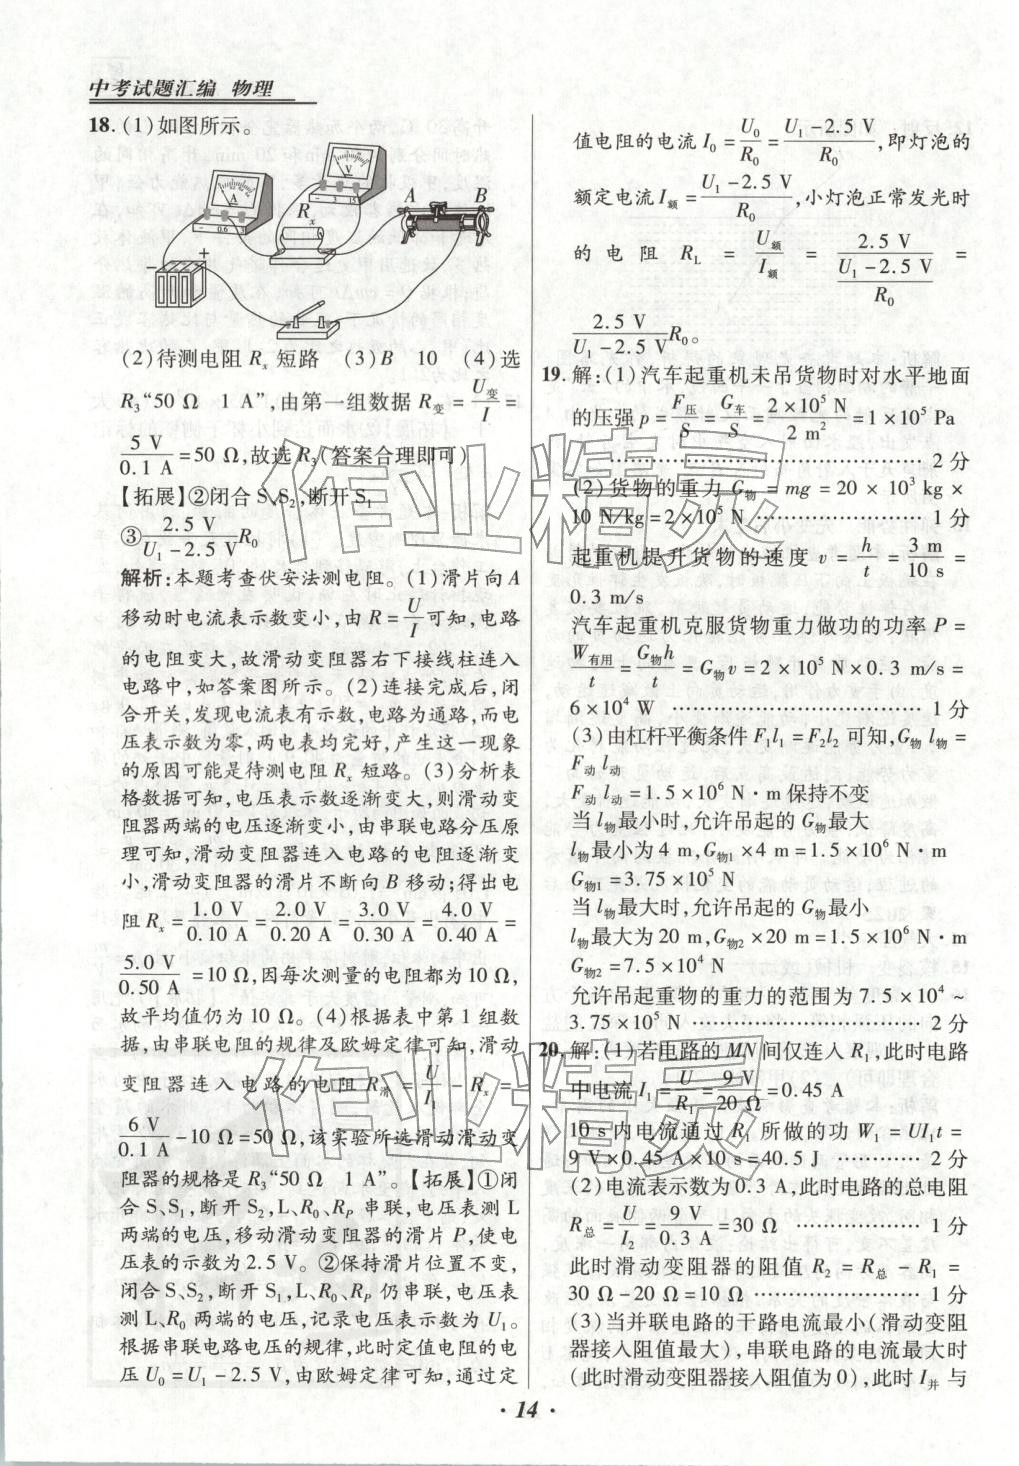 中考试题汇编 物理
18. (1)如图所示。
A
V
-0.6 3
- 3 15
Rx
A B
− +
(2)待测电阻 Rx 短路 (3)B 10 (4)选
R3“50 Ω 1 A”,由第一组数据 R变 = U变/I =
5 V/0.1 A = 50 Ω,故选 R3(答案合理即可)
【拓展】②闭合 S、S2,断开 S1
③ 2.5 V/(U1-2.5 V) R0
解析:本题考查伏安法测电阻。(1)滑片向 A
移动时电流表示数变小,由 R = U/I 可知,电路
的电阻变大,故滑动变阻器右下接线柱连入
电路中,如答案图所示。(2)连接完成后,闭
合开关,发现电流表有示数,电路为通路,而电
压表示数为零,两电表均完好,产生这一现象
的原因可能是待测电阻 Rx 短路。(3)分析表
格数据可知,电压表示数逐渐变大,则滑动变
阻器两端的电压逐渐变小,由串联电路分压原
理可知,滑动变阻器连入电路的电阻逐渐变
小,滑动变阻器的滑片不断向 B 移动;得出电
阻 Rx = 1.0 V/0.10 A = 2.0 V/0.20 A = 3.0 V/0.30 A = 4.0 V/0.40 A =
5.0 V/0.50 A = 10 Ω,因每次测量的电阻都为 10 Ω,
故平均值仍为 10 Ω。(4)根据表中第 1 组数
据,由串联电阻的规律及欧姆定律可知,滑动
变阻器连入电路的电阻 R滑 = U/I − Rx =
6 V/0.1 A − 10 Ω = 50 Ω,该实验所选滑动滑动变
阻器的规格是 R3“50 Ω 1 A”。【拓展】①闭
合 S、S1,断开 S2,L、R0、RP 串联,电压表测 L
两端的电压,移动滑动变阻器的滑片 P,使电
压表的示数为 2.5 V。②保持滑片位置不变,
闭合 S、S2,断开 S1,L、R0、RP 仍串联,电压表
测 L、R0 两端的电压,记录电压表示数为 U1。
根据串联电路电压的规律,此时定值电阻的电
压 U0=U1-2.5 V,由欧姆定律可知,通过定
值电阻的电流 I0 = U0/R0 = (U1-2.5 V)/R0,即灯泡的
额定电流 I额 = (U1-2.5 V)/R0,小灯泡正常发光时
的电阻 RL = U额/I额 = 2.5 V/((U1-2.5 V)/R0) =
2.5 V/(U1-2.5 V) R0。
19. 解:(1)汽车起重机未吊货物时对水平地面
的压强 p = F压/S = G车/S = 2×10⁵ N/2 m² = 1×10⁵ Pa
…………………………………… 2 分
(2)货物的重力 G物 = mg = 20 × 10³ kg ×
10 N/kg = 2×10⁵ N ………………… 1 分
起重机提升货物的速度 v = h/t = 3 m/10 s =
0.3 m/s
汽车起重机克服货物重力做功的功率 P =
W有用/t = G物h/t = G物v = 2×10⁵ N×0.3 m/s =
6×10⁴ W …………………………… 1 分
(3)由杠杆平衡条件 F1l1=F2l2 可知,G物 l物 =
F动 l动
F动 l动 = 1.5×10⁶ N·m 保持不变
当 l物最小时,允许吊起的 G物最大
l物最小为 4 m,G物1×4 m=1.5×10⁶ N·m
G物1=3.75×10⁵ N
当 l物最大时,允许吊起的 G物最小
l物最大为 20 m,G物2×20 m=1.5×10⁶ N·m
G物2=7.5×10⁴ N
允许吊起重物的重力的范围为 7.5×10⁴ ~
3.75×10⁵ N ………………………… 2 分
20. 解:(1)若电路的 MN 间仅连人 R1,此时电路
中电流 I1 = U/R1 = 9 V/20 Ω = 0.45 A
10 s 内电流通过 R1 所做的功 W1=UI1t=
9 V×0.45 A×10 s=40.5 J ………… 2 分
(2)电流表示数为 0.3 A,此时电路的总电阻
R总 = U/I2 = 9 V/0.3 A = 30 Ω ……………… 1 分
此时滑动变阻器的阻值 R2 = R总 − R1 =
30 Ω-20 Ω=10 Ω ………………… 1 分
(3)当并联电路的干路电流最小(滑动变阻
器接入阻值最大),串联电路的电流最大时
(此时滑动变阻器接入阻值为 0),此时 I并 与
· 14 ·
作业精灵
作业精灵